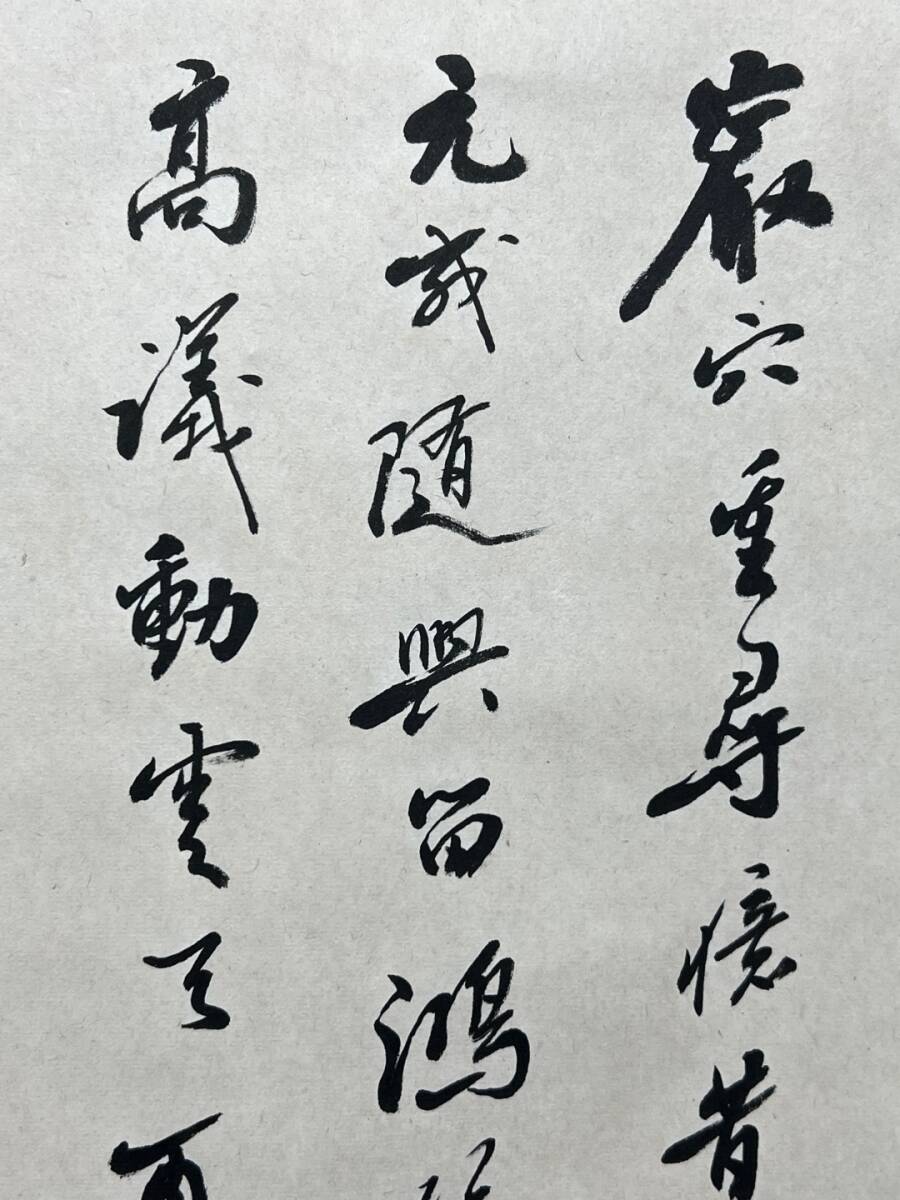 巖穴重尋憶昔
元隨興留鴻
高議動雲天